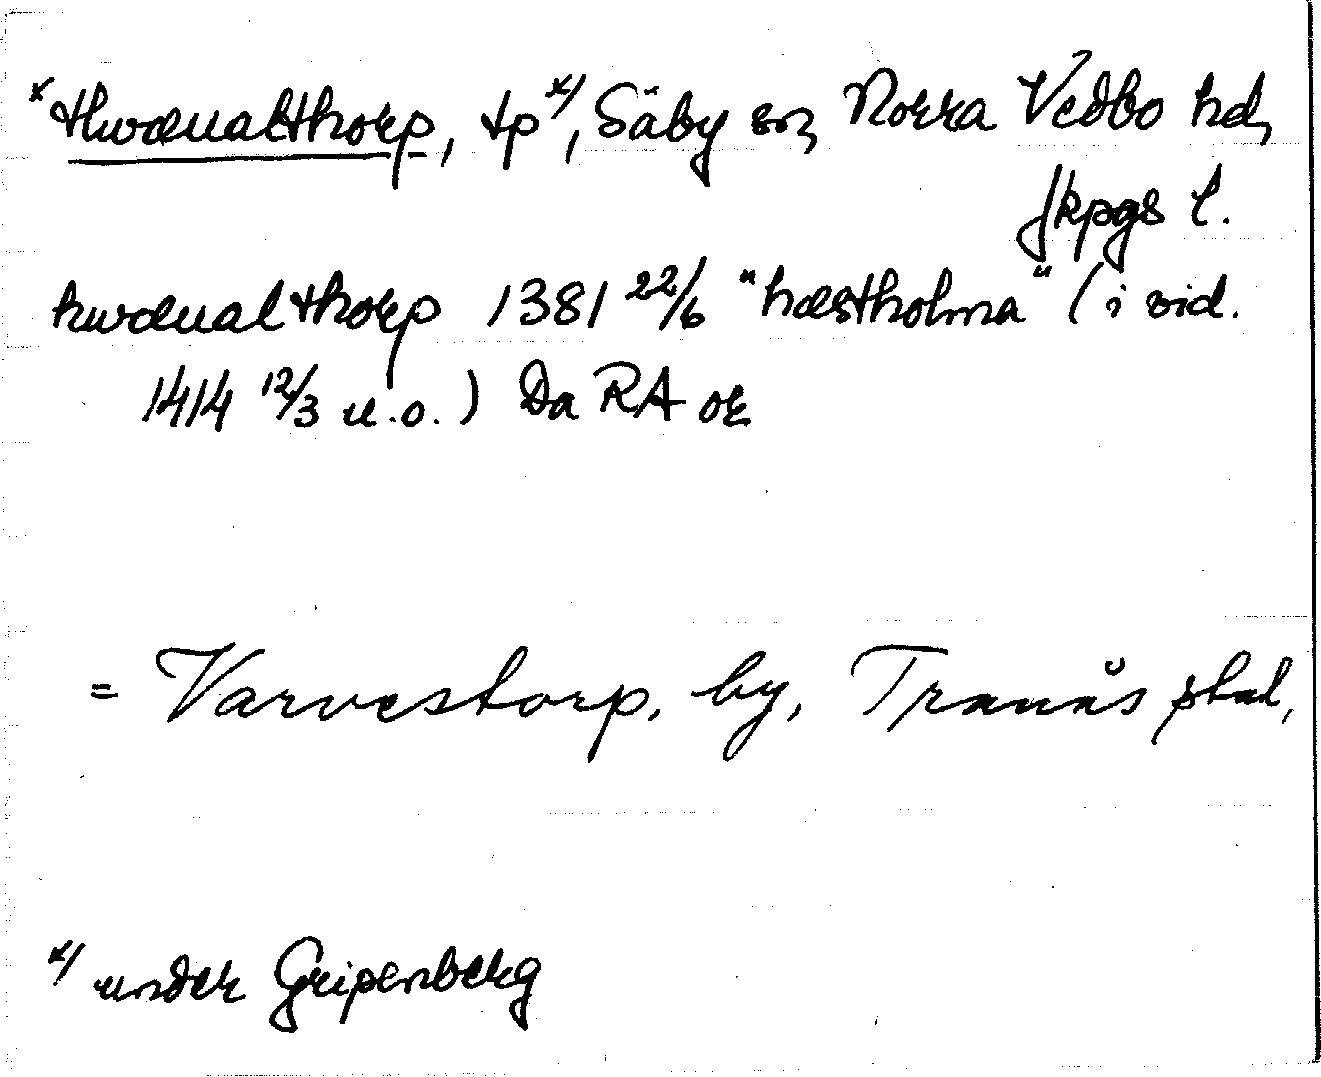 x thwæualtthorp, tp x/, Säby sn, Norra Vedbo hd,
Jkpgs l.
hwæualtthorp 1381 22/6 "hæstholma" (i vid.
1414 12/3 u.o.) Da RA or
= Varvestorp, by, Tranås stad,
x/ under Gripenberg